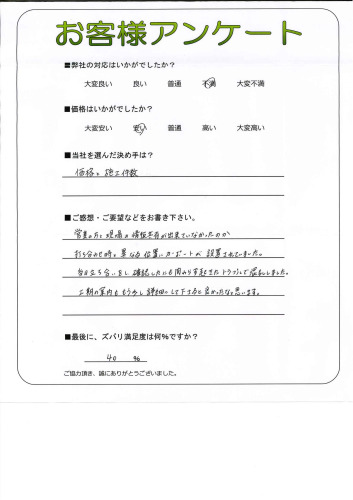 お客様アンケート
■弊社の対応はいかがでしたか？
大変良い 良い 普通 不満 大変不満
■価格はいかがでしたか？
大変安い 安い 普通 高い 大変高い
■当社を選んだ決め手は？
価格。施工件数
■ご感想・ご要望などをお書き下さい。
営業の方と現場の情報共有が出来ていなかったのか
打ち合わせ時と異なる位置にカーポートが設置されていました。
当日立ち合いをし確認したにも関わらず起きたトラブルで
工期の案内ももう少し詳細にして下さると良かったなと思います。
■最後に、ズバリ満足度は何％ですか？
40 ％
ご協力頂き、誠にありがとうございました。